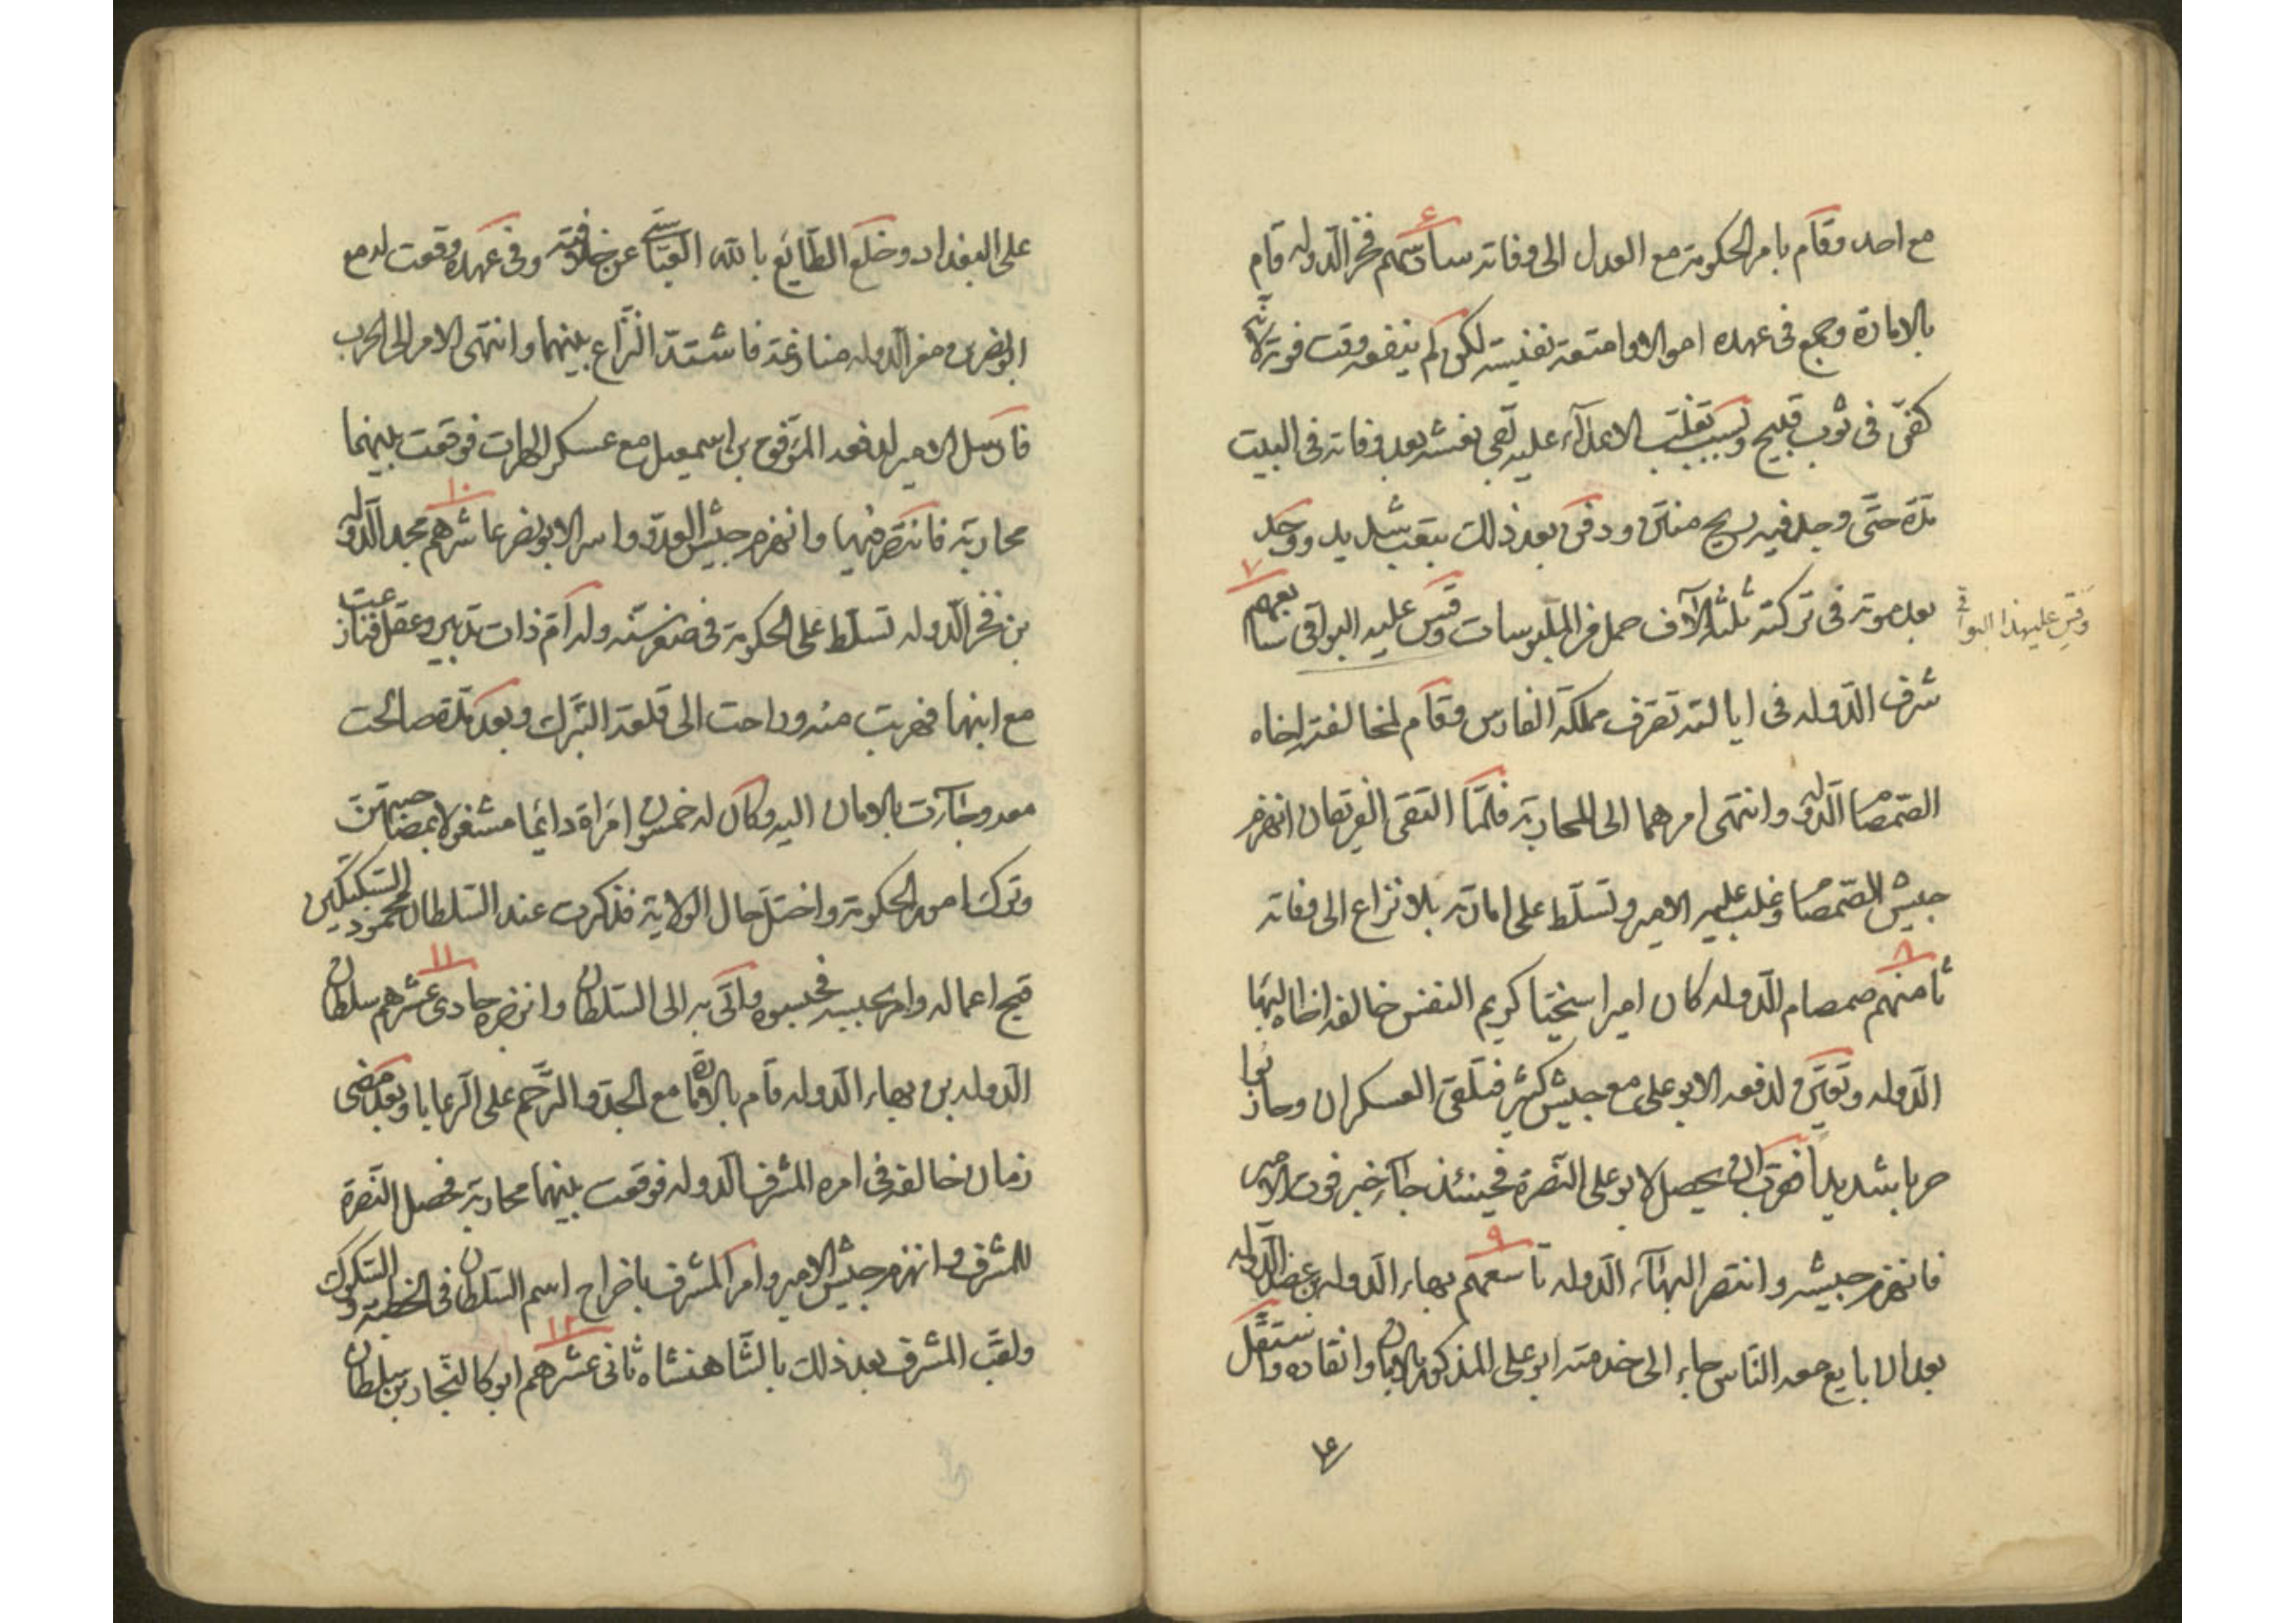 مع احد وقام بامر الحكومة مع العدل الى وفاته سادسهم فخر الدوله قام
بالامارة وجمع فى عهده اموالا وامتعة نفيسة لكن لم ينفعه وقت فوته لانه
كفن فى ثوب قبيح وبسبب تغلب الاعداء عليه بقى نعشه بعد وفاته فى البيت
مدة حتى وجد فيه ريح منتن ودفن بعد ذلك بتعب شديد ووجد
بعد موته فى تركته ثلثة الآف حمل من الملبوسات وقس عليه البواقى سابعهم
وقس عليه هذا البواقى
شرف الدوله فى ايالته تصرف مملكة الفارس وقام لمخالفة اخاه
الصمصام الدوله وانتهى امرهما الى المحاربة فلما التقى الفريقان انهزم
جيش الصمصام وغلب عليه الامير وتسلط على امارته بلا نزاع الى وفاته
ثامنهم صمصام الدوله كان اميرا سخيا كريم النفس خالفه اخاه البهاء
الدوله وتعين لدفعه الابو على مع جيش كثير فتلقى العسكران وحاربا
حربا شديدا فقرب ان يحصل لابو على النصرة فحينئذ جاء خبر فوت الامير
فانهزم جيشه وانتصر البهاء الدوله تاسعهم بهاء الدوله بن عضد الدوله
بعد ان بايع معه الناس جاء الى خدمته ابو على المذكور بالامان وانقاده واستقل
على
على البغداد وخلع الطايع بالله العباسى عن خلافته وفى عهده وقعت له مع
ابو نصر بن معز الدوله منازعة فاشتد النزاع بينهما وانتهى الامر الى الحرب
فارسل الامير لدفعه الموفق بن اسمعيل مع عسكر الهرات فوقعت بينهما
محاربة فانتصر فيها وانهزم جيش العدو واسر الابو نصر عاشرهم مجد الدوله
بن فخر الدوله تسلط على الحكومة فى صغر سنه وله ام ذات تدبير وعقل فنازعت
مع ابنها فهربت منه وراحت الى قلعة الترك وبعد مدة صالحت
معه وجاءت بالامان اليه وكان له خمسون امراة دائما مشغولا بمصاحبتهن
وترك امور الحكومة واختل حال الولاية فذكرت عند السلطان محمود السبكتكين
قبح اعماله وامر بحبسه فحبسوه واتى به الى السلطان وانزجره حادى عشرهم سلطان
الدوله بن بهاء الدوله قام بالامارة مع الجد والترحم على الرعايا وبعد مضى
زمان خالفه فى امره المشرف الدوله فوقعت بينهما محاربة فحصل النصرة
للمشرف وانهزم جيش الامير وامر المشرف باخراج اسم السلطان فى الخطبة والسكوك
ولقب المشرف بعد ذلك بالشاهنشاه ثانى عشرهم ابو كالنجار بن سلطان